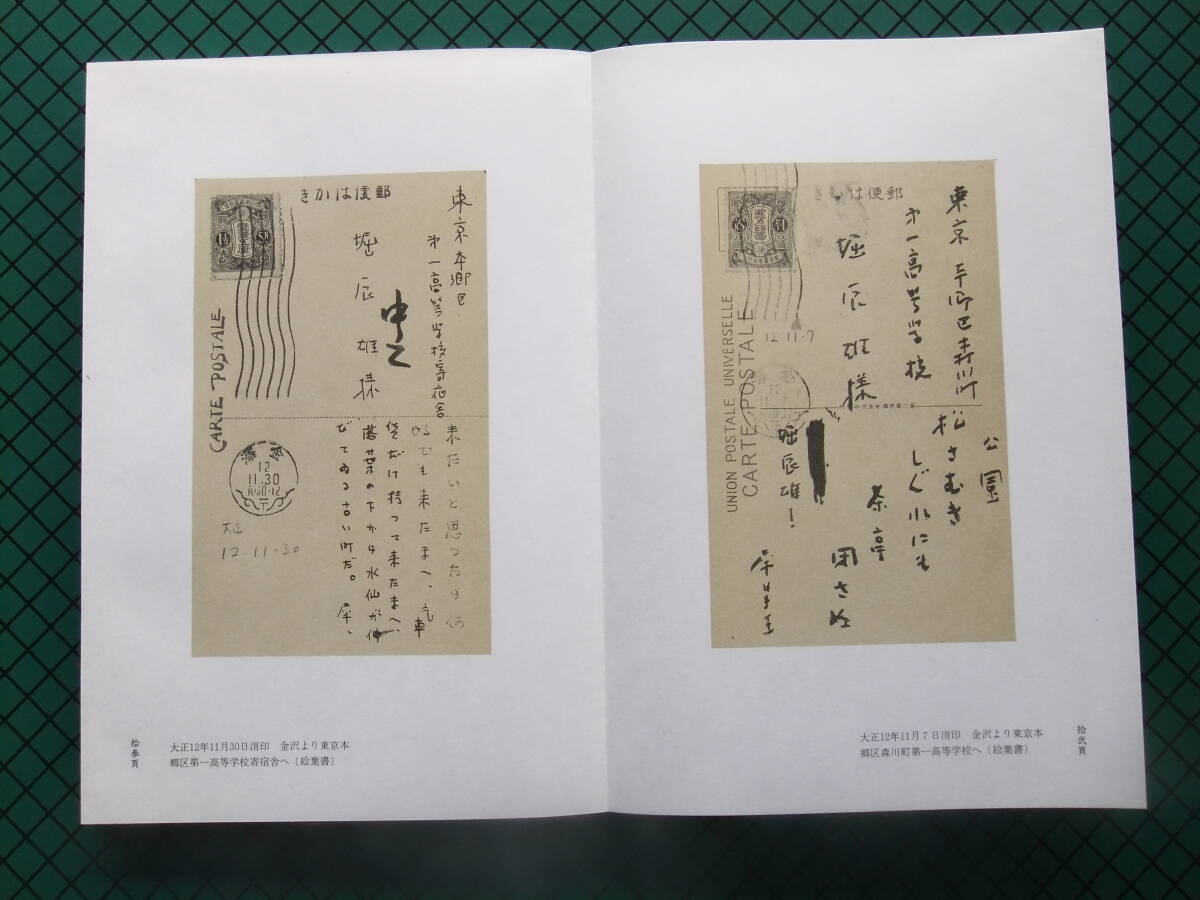 郵便はかき
東京本郷区森川町
第一高等学校
堀辰雄様
UNION POSTALE UNIVERSELLE
CARTE POSTALE
12.11.7
公園
松さむき
しぐれにも
茶亭
閉さぬ
堀辰雄!
犀星
大正12年11月7日消印 金沢より東京本
郷区森川町第一高等学校へ(絵葉書)
拾弐頁
郵便はかき
東京本郷区
第一高等学校寄宿舎
堀辰雄様
CARTE POSTALE
12
11.30
大正
12.11.30
来たいと思つたら何
時でも来たまへ、汽車
賃だけ持つて来たまへ、
落葉の下から水仙が伸
びてゐる古い町だ。 犀、
大正12年11月30日消印 金沢より東京本
郷区第一高等学校寄宿舎へ(絵葉書)
拾参頁